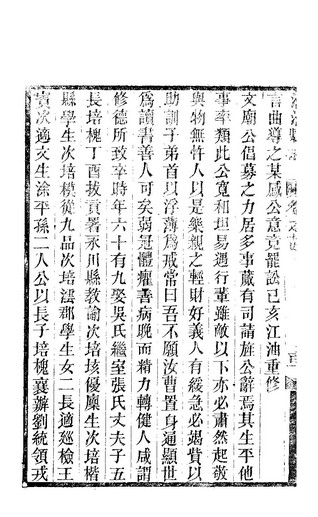 言曲導之某感公意竟罷訟己亥江油重修
文廟公倡募之力居多事蕆有司請旌公辭焉其生平他
事率類此公寬和坦易遇行輩雖敵以下亦必肅然起敬
與物無忤人以是樂親之輕財好義人有緩急必竭貲以
助訓子弟首以浮薄為戒常曰吾不願汝曹置身通顯世
為讀書善人可矣弱冠體癯善病晚而精力轉健人咸謂
修德所致卒時年六十有九娶吳氏繼室張氏丈夫子五
長培槐丁酉拔貢署永川縣教諭次培垓優廩生次培楷
縣學生次培模從九品次培澐郡學生女二長適巡檢王
賓次適文生涂平孫二人公以長子培槐襄辦劉統領戎